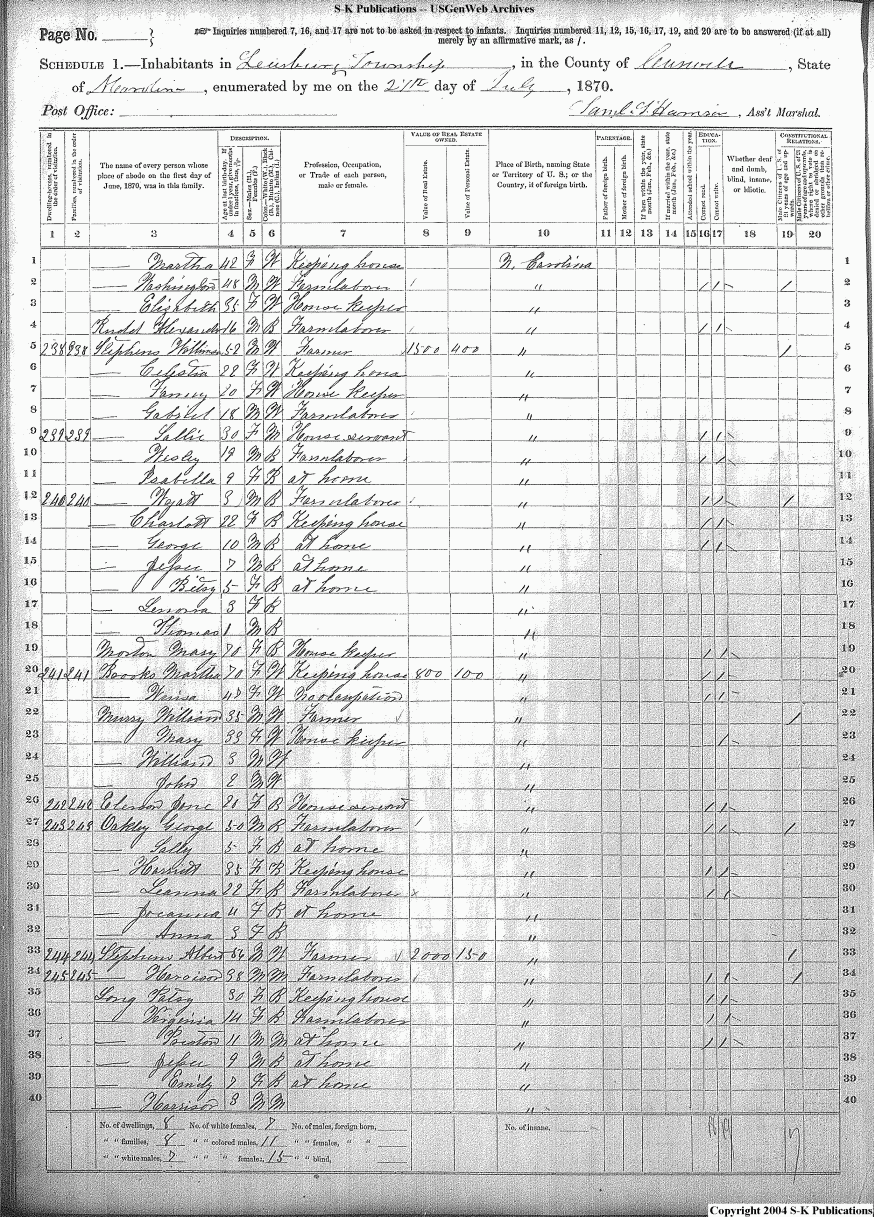 S-K Publications -- USGenWeb Archives
Page No.
Inquiries numbered 7, 16, and 17 are not to be asked in respect to infants. Inquiries numbered 11, 12, 15, 16, 17, 19, and 20 are to be answered (if at all) merely by an affirmative mark, as /.
SCHEDULE 1.—Inhabitants in Leasburg Township, in the County of Caswell, State
of N Carolina, enumerated by me on the day of July, 1870.
Post Office: Saml. Harrison, Ass't Marshal.
DESCRIPTION. VALUE OF REAL ESTATE OWNED. PARENTAGE. EDUCATION. CONSTITUTIONAL RELATIONS.
Dwelling-houses, numbered in the order of visitation.
Families, numbered in the order of visitation.
The name of every person whose place of abode on the first day of June, 1870, was in this family.
Profession, Occupation, or Trade of each person, male or female.
Value of Real Estate.
Value of Personal Estate.
Place of Birth, naming State or Territory of U. S.; or the Country, if of foreign birth.
Father of foreign birth.
Mother of foreign birth.
Attended school within the year.
Cannot read.
Cannot write.
Whether deaf and dumb, blind, insane, or idiotic.
1 2 3 4 5 6 7 8 9 10 11 12 13 14 15 16 17 18 19 20
1 — Martha 42 F W Keeping house N. Carolina 1
2 — Washington 48 M W Farmlaborer " / / / 2
3 — Elizabeth 35 F W House keeper " 3
4 Alexander 16 M B Farmlaborer " / / 4
5 238 238 Stephens William 52 M W Farmer 1500 400 " / 5
6 — Celestia 22 F W Keeping hous " 6
7 — Fanny 20 F W House keeper " 7
8 — Gabriel 18 M W Farmlaborer " 8
9 239 239 — Sallie 30 F M House servant " / / 9
10 — Wesley 19 M B Farmlaborer " / / 10
11 — Isabella 9 F B at home " 11
12 240 240 — Wyatt M B Farmlaborer " / / / 12
13 — Charlott 22 F B Keeping house " / / 13
14 — George 10 M B at home " / / 14
15 — Jesse 7 M B at home " 15
16 — Betsy 5 F B at home " 16
17 — Lenora 3 F B " 17
18 — Thomas 1 M B " 18
19 Morton Mary 70 F B House keeper " / / 19
20 241 241 Brooks Martha 70 F W Keeping house 800 100 " / / 20
21 — F W No occupation " / / 21
22 Murry William 35 M W Farmer " / 22
23 — Mary 33 F W House keeper " / 23
24 — William 3 M W " 24
25 — John 2 M W " 25
26 242 242 Jane 21 F B House servant " / / 26
27 243 243 Oakley George 50 M B Farmlaborer " / / / 27
28 — Sally 5 F B at home " 28
29 — Harriett 35 F B Keeping house " / / 29
30 — Leanna 22 F B Farmlaborer " / / 30
31 — Joanna 11 F B at home " 31
32 — Anna 3 F B " 32
33 244 244 Stephens Albert 54 M W Farmer 2000 150 " / 33
34 245 245 — Harrison 38 M M Farmlaborer " / / / 34
35 Long Patsy 30 F B Keeping house " / / 35
36 — Virginia 14 F B Farmlaborer " / / 36
37 — Preston 11 M M at home " / / 37
38 — Jesse 9 M B at home " 38
39 — Emily 7 F B at home " 39
40 — Harrison 3 M M " 40
No. of dwellings, 8 No. of white females, 7 No. of males, foreign born, No. of insane,
" " families, 8 " " colored males, 11 " " females, " "
" " white males, 7 " " " females, 15 " " blind,
Copyright 2004 S-K Publications